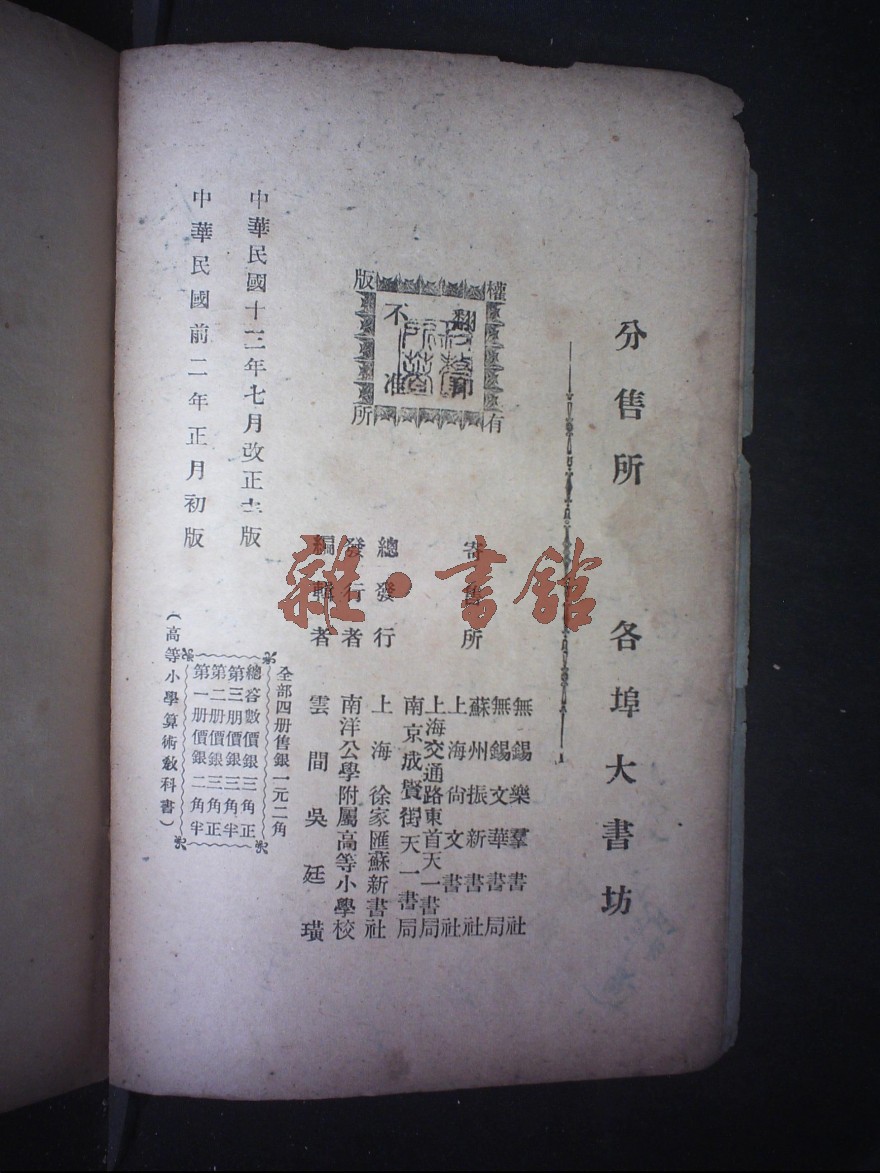 分售所 各埠大書坊
寄售所
無錫樂羣書社
無錫文華書局
蘇州振新書社
上海尚文書社
上海交通路東首天一書局
南京成賢街天一書局
總發行 上海徐家匯蘇新書社
發行者 南洋公學附屬高等小學校
編輯者 雲間吳廷璜
版權所有
翻印
不准
全部四册售銀一元二角
總答數價銀三角正
第三册價銀三角半
第二册價銀三角正
第一册價銀二角半
(高等小學算術教科書)
中華民國十二年七月改正十二版
中華民國前二年正月初版
雜·書館